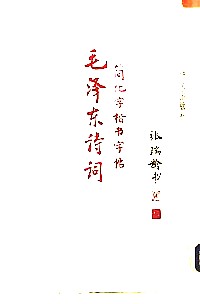 毛泽东诗词
简化字楷书字帖
张瑞龄书